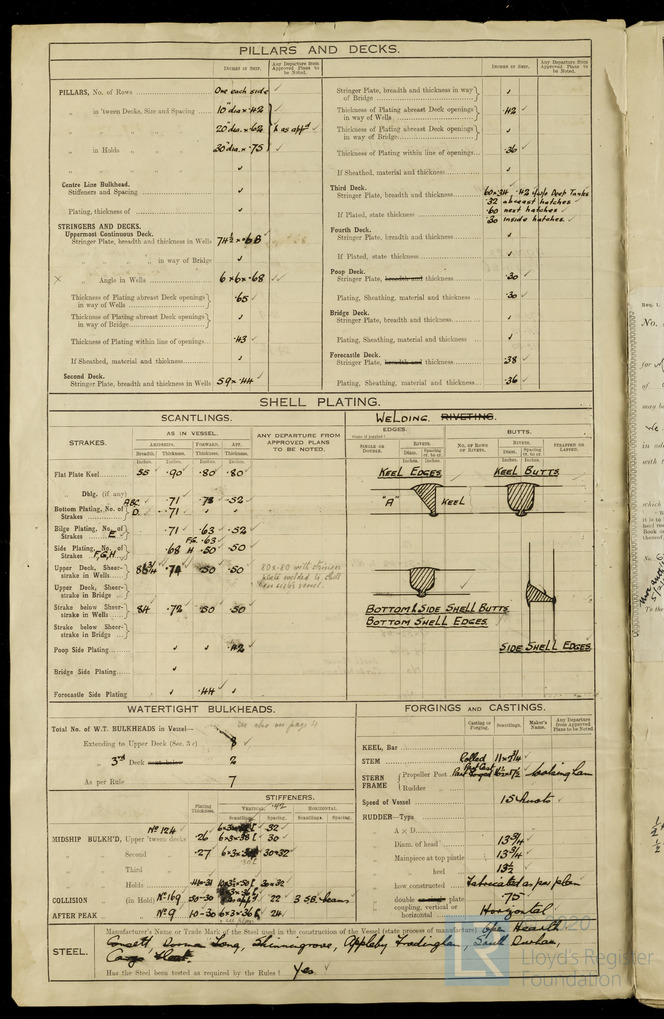 PILLARS AND DECKS.
INCHES IN SHIP.
Any Departure from Approved Plans to be Noted.
INCHES IN SHIP.
Any Departure from Approved Plans to be Noted.
PILLARS, No. of Rows One each side ✓
„ in 'tween Decks, Size and Spacing 10" dia × .42
„ „ „ 20" dia. × .62 as appd ✓
„ in Holds „ „ 30" dia. × .75
„ „ „
Centre Line Bulkhead.
Stiffeners and Spacing
Plating, thickness of
STRINGERS AND DECKS.
Uppermost Continuous Deck.
Stringer Plate, breadth and thickness in Wells 74½ × .68
„ „ „ in way of Bridge
„ Angle in Wells 6 × 6 × .68 ✓
Thickness of Plating abreast Deck openings in way of Wells .65 ✓
Thickness of Plating abreast Deck openings in way of Bridge
Thickness of Plating within line of openings .43 ✓
If Sheathed, material and thickness
Second Deck.
Stringer Plate, breadth and thickness in Wells 59 × .44 ✓
Stringer Plate, breadth and thickness in way of Bridge
Thickness of Plating abreast Deck openings in way of Wells .42 ✓
Thickness of Plating abreast Deck openings in way of Bridge
Thickness of Plating within line of openings .36 ✓
If Sheathed, material and thickness
Third Deck.
Stringer Plate, breadth and thickness 60 × .34 .42 i/w/o Deep Tanks
.32 abreast hatches ✓
If Plated, state thickness .60 next hatches ✓
.30 inside hatches ✓
Fourth Deck.
Stringer Plate, breadth and thickness
If Plated, state thickness
Poop Deck.
Stringer Plate, breadth and thickness .30 ✓
Plating, Sheathing, material and thickness .30 ✓
Bridge Deck.
Stringer Plate, breadth and thickness
Plating, Sheathing, material and thickness
Forecastle Deck.
Stringer Plate, breadth and thickness .38 ✓
Plating, Sheathing, material and thickness .36 ✓
SHELL PLATING.
SCANTLINGS.
WELDING. RIVETING.
STRAKES.
AS IN VESSEL.
AMIDSHIPS. FORWARD. AFT.
Breadth. Thickness. Thickness. Thickness.
Inches. Inches. Inches. Inches.
ANY DEPARTURE FROM APPROVED PLANS TO BE NOTED.
EDGES.
State if joggled
SINGLE OR DOUBLE.
RIVETS.
Diam. Spacing cr. to cr.
Inches. Inches.
BUTTS.
NO. OF ROWS OF RIVETS.
RIVETS.
Diam. Spacing cr. to cr.
Inches. Inches.
STRAPPED OR LAPPED.
Flat Plate Keel .90 ✓ .80 ✓ .80 ✓
Dblg. (if any)
Bottom Plating, No. of Strakes ABC D. .71 ✓ .52 ✓
.71 ✓
Bilge Plating, No. of Strakes E .71 ✓ .63 ✓ .52 ✓
Side Plating, No. of Strakes F,G,H .68 FG .63 H .50 .50 ✓
Upper Deck, Sheer-strake in Wells .50 .50 ✓
80 × .80 with stringer plate welded to shell
Upper Deck, Sheer-strake in Bridge
Strake below Sheer-strake in Wells 84 .72 ✓ .50 .50 ✓
Strake below Sheer-strake in Bridge
Poop Side Plating .42 ✓
Bridge Side Plating
Forecastle Side Plating .44 ✓
KEEL EDGES
KEEL BUTTS
"A"
KEEL
BOTTOM & SIDE SHELL BUTTS
BOTTOM SHELL EDGES
SIDE SHELL EDGES
WATERTIGHT BULKHEADS.
Total No. of W.T. BULKHEADS in Vessel— See also on page 4
Extending to Upper Deck (Sec. 3 c) 8 ✓
„ 3rd Deck next below 2
As per Rule 7
STIFFENERS.
Plating Thickness.
VERTICAL. HORIZONTAL.
Scantlings. Spacing. Scantlings. Spacing.
MIDSHIP BULKH'D, Upper 'tween decks No 124 .26 32 ✓
30
„ Second .27 30 × 32
„ Third
„ Holds 30 × 32
COLLISION „ (in Hold) No 169 .50-30 22 ✓ 3 SB. beams
AFTER PEAK „ No 9 .10-30 6 × 3 × .36 24
FORGINGS AND CASTINGS.
Casting or Forging.
Scantlings.
Maker's Name.
Any Departure from Approved Plans to be Noted
KEEL, Bar
STEM Rolled 11 × 2¼ ✓
STERN FRAME Propeller Post Wolsingham
Rudder „
Speed of Vessel 15 knots ✓
RUDDER—Type
„ A × D
„ Diam. of head 13¾ ✓
„ Mainpiece at top pintle 13¾ ✓
„ „ heel 13½
„ how constructed Fabricated as per plan
„ double plate .75 ✓
„ coupling, vertical or horizontal Horizontal
STEEL.
Manufacturer's Name or Trade Mark of the Steel used in the construction of the Vessel (state process of manufacture) Open Hearth
Consett, Dorman Long, Skinningrove, Appleby Frodingham, South Durham,
Cargo Fleet.
Has the Steel been tested as required by the Rules? Yes ✓
2020
Lloyd's Register
Foundation